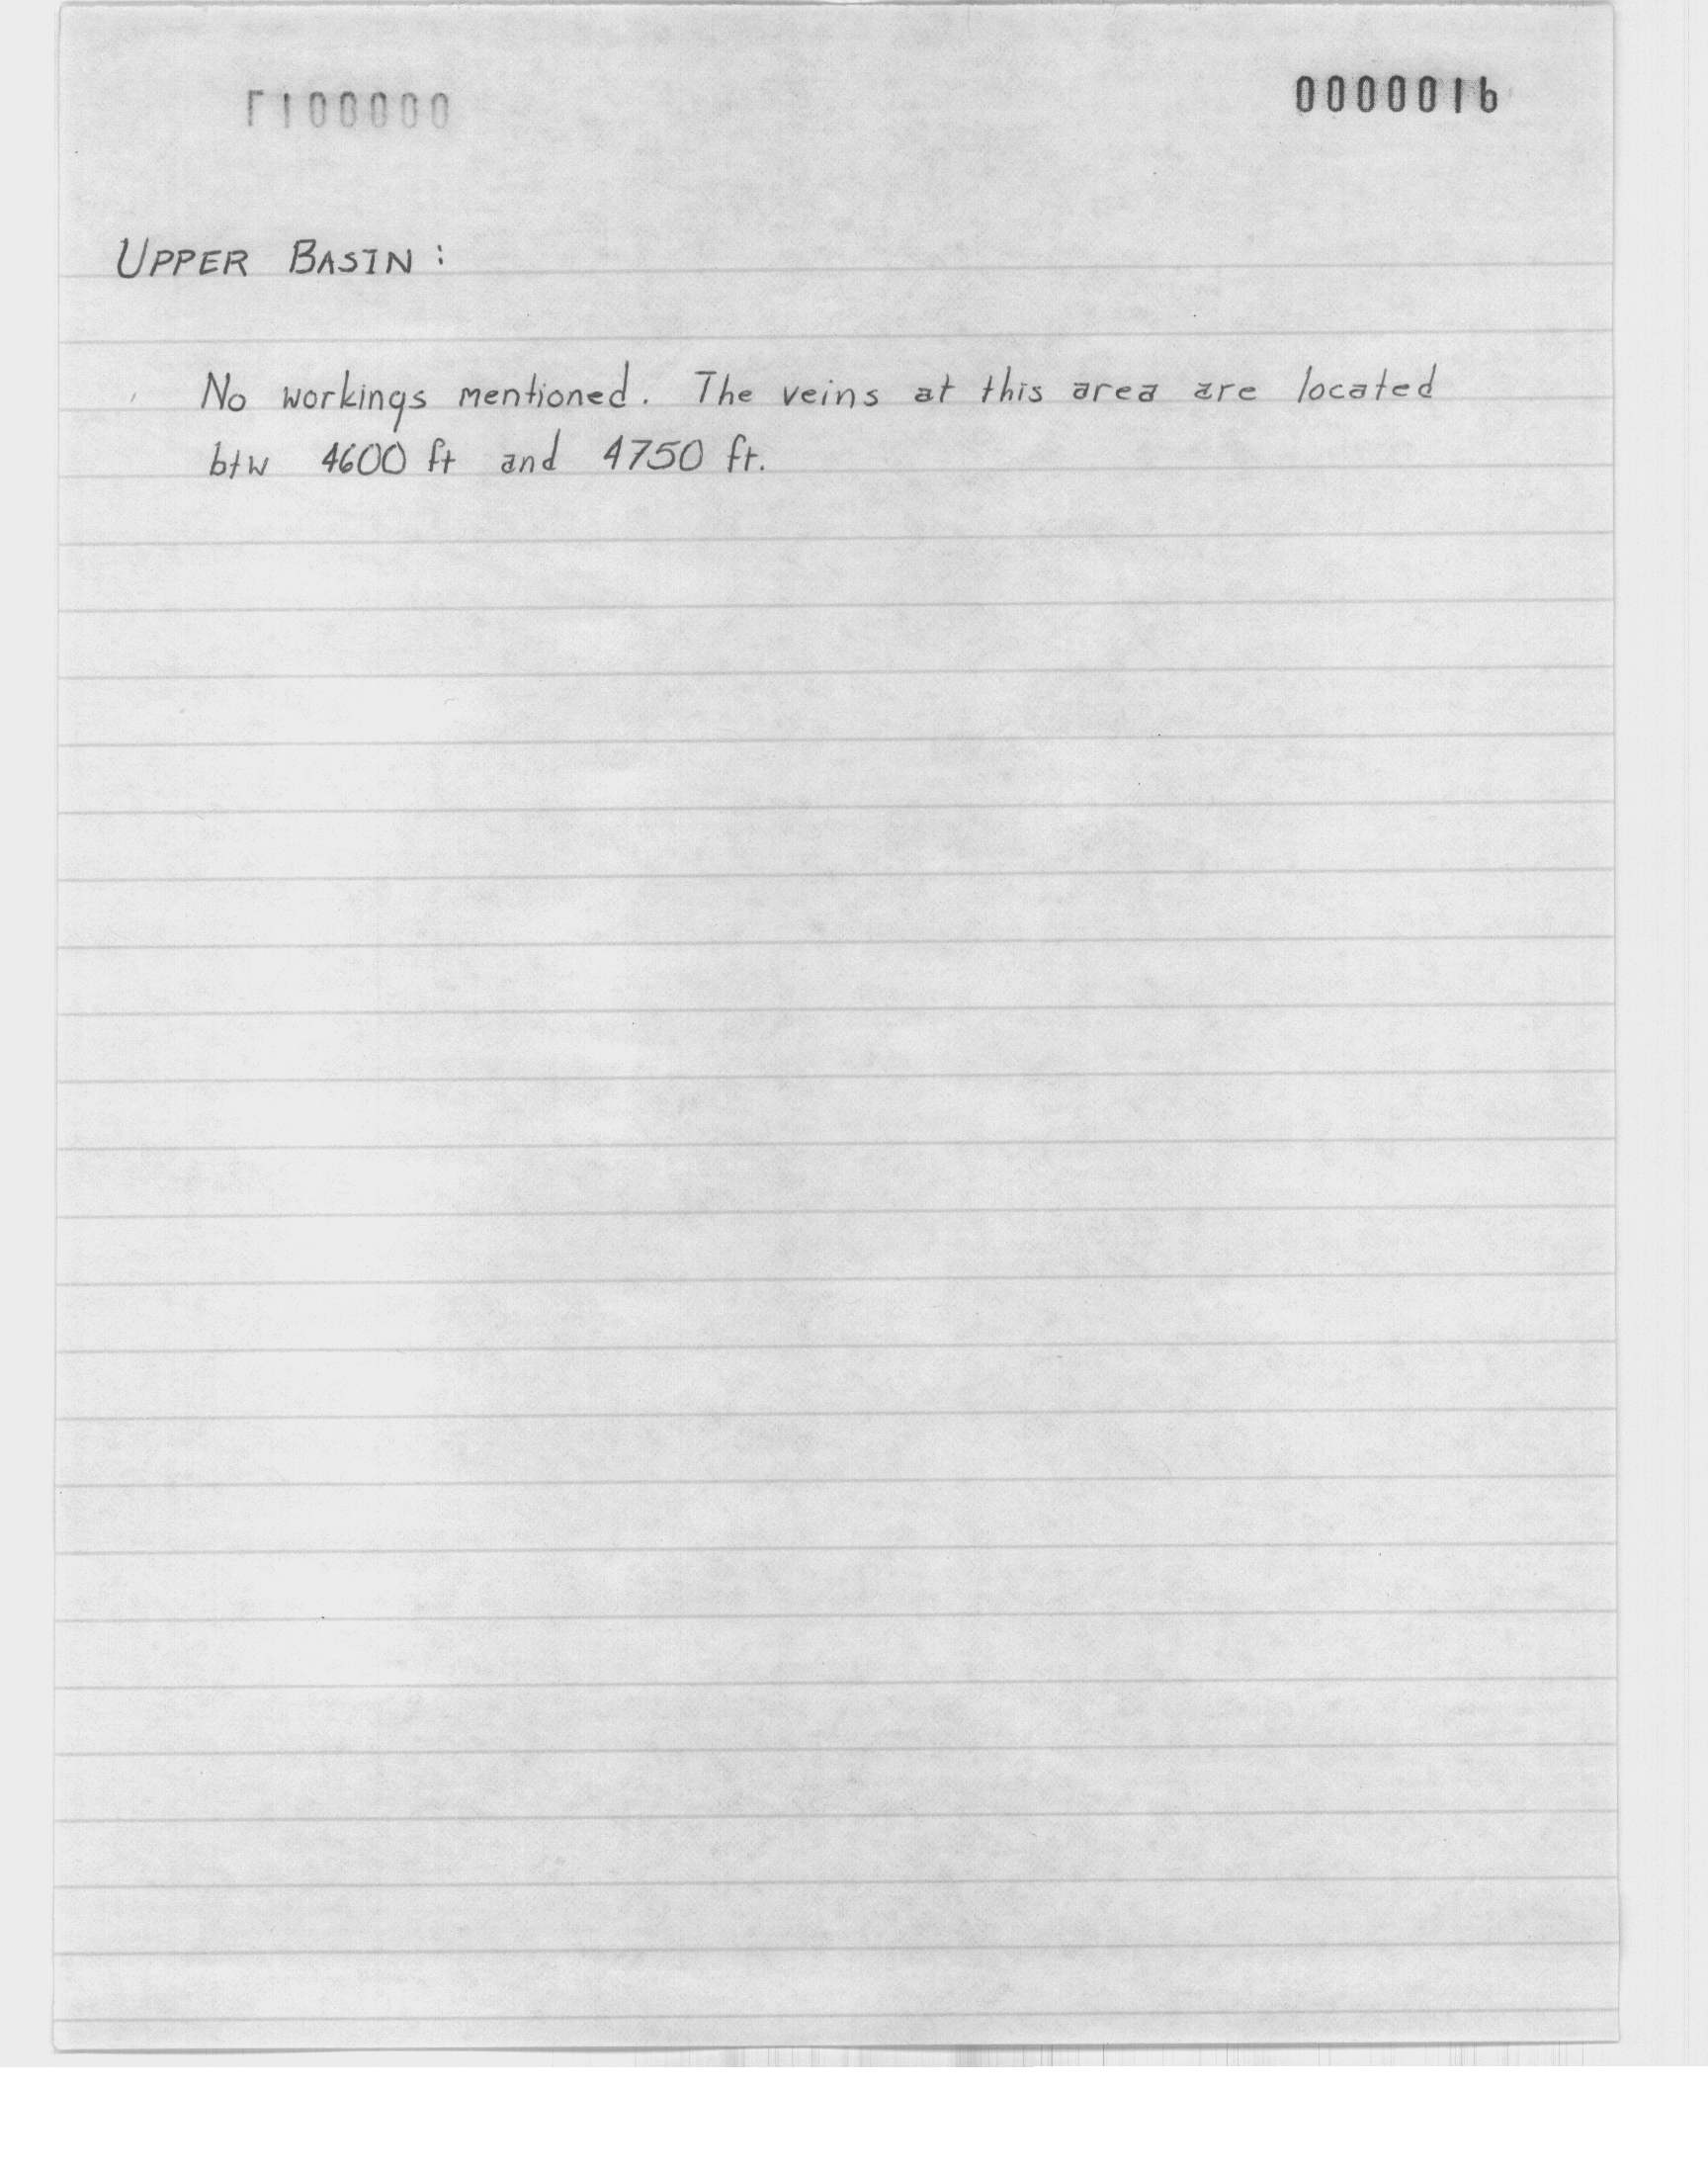 0000016
UPPER BASIN:
No workings mentioned. The veins at this area are located
btw 4600 ft and 4750 ft.